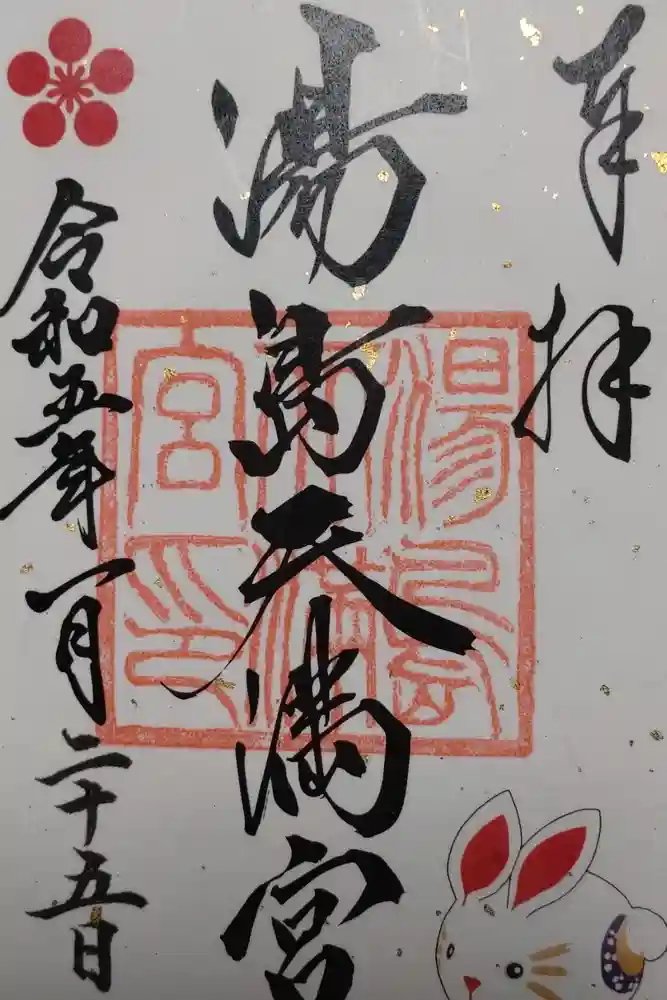 奉拝
湯島天満宮
湯島
天満
宮印
令和五年一月二十五日